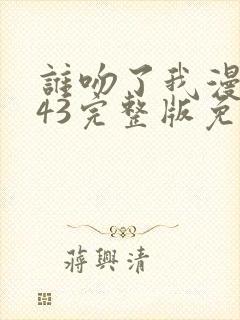 誰吻了我漫
43完整版免
蔣興清